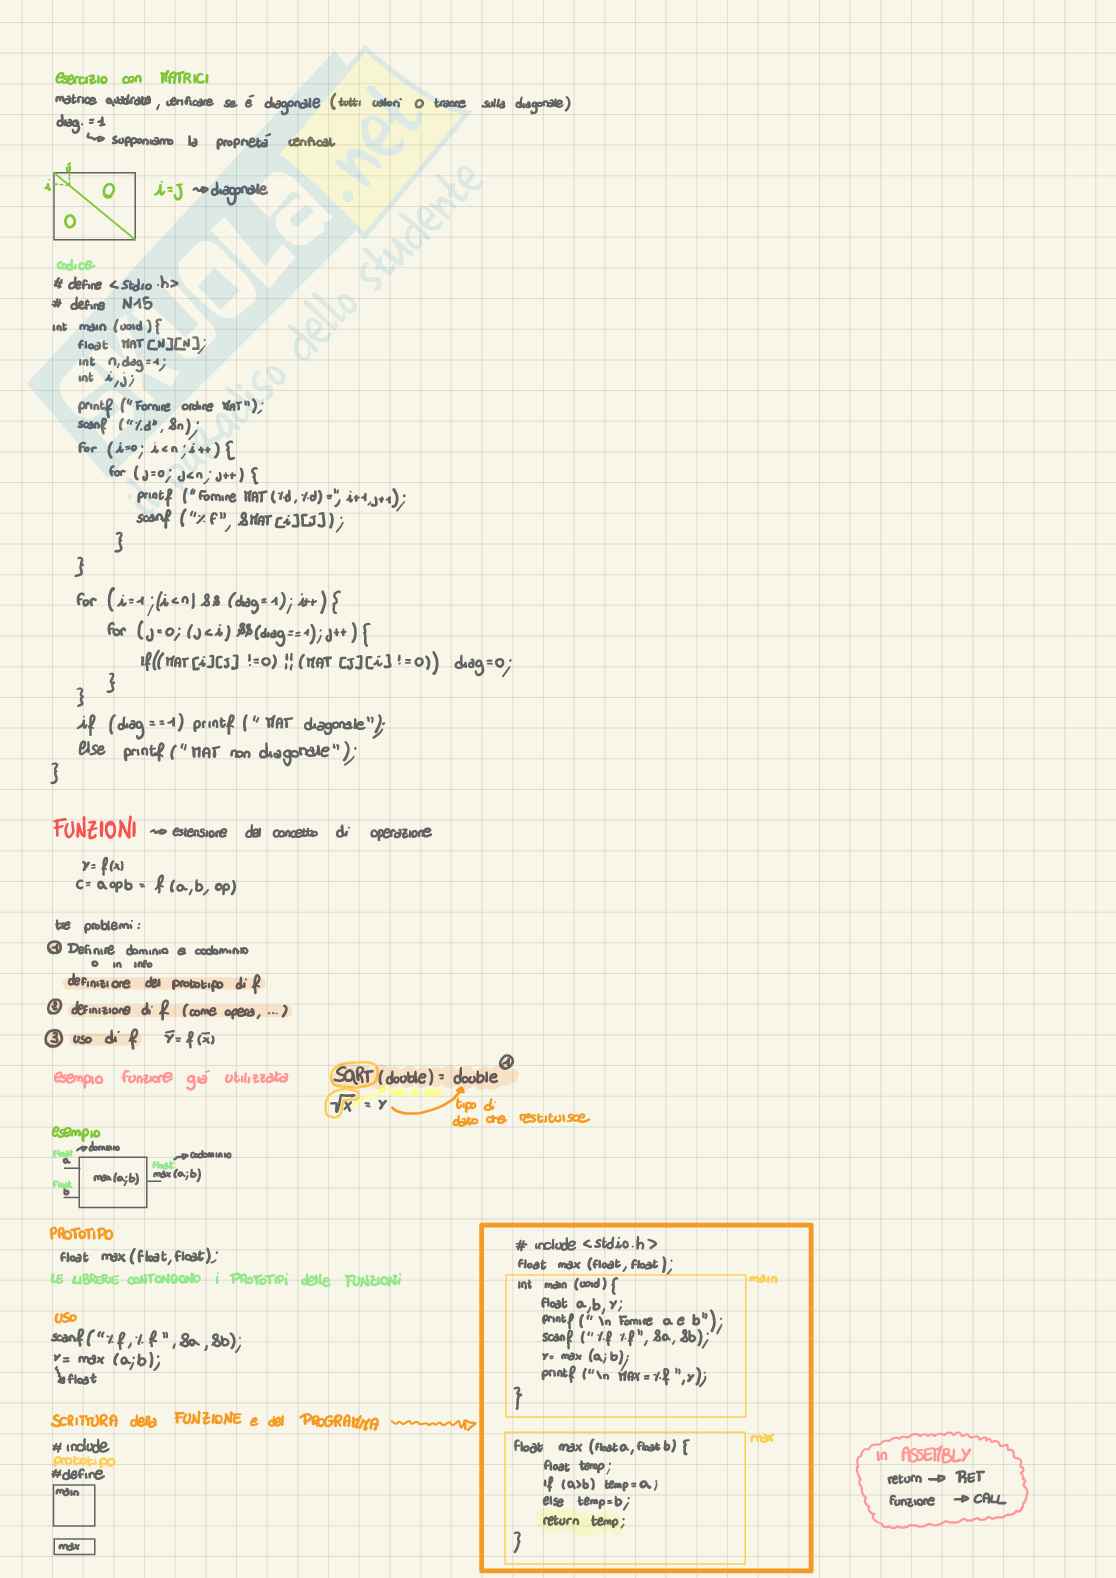 esercizio con MATRICI
matrice quadrata, verificare se é diagonale (tutti valori 0 tranne sulla diagonale)
diag. = 1
↳ supponiamo la proprietá verificat
j
i
0
0
i=J ⇝ diagonale
codice
# define <stdio.h>
# define N15
int main (void) {
float MAT [N][N];
int n, dag=1;
int i,j;
printf ("Fornire ordine MAT");
scanf ("%d", &n);
for (i=0; i<n; i++) {
for (j=0; j<n; j++) {
printf ("Fornire MAT (%d, %d) =", i+1, j+1);
scanf ("%f", &MAT[i][J]);
}
}
for (i=1; (i<n) && (diag=1); i++) {
for (j=0; (j<i) && (diag==1); j++) {
if((MAT[i][J] !=0) || (MAT [J][i] !=0)) diag=0;
}
}
if (diag ==1) printf (" MAT diagonale");
else printf (" MAT non diagonale");
}
FUNZIONI ⇝ estensione del concetto di operazione
y= f(x)
C= a op b = f (a, b, op)
tre problemi:
① Definire dominio e codominio
o in info
definizione del prototipo di f
② definizione di f (come opera, ...)
③ uso di f ȳ= f(x̄)
esempio funzione giá utilizzata
SQRT (double) = double ①
√x = y
tipo di
dato che restituisce
esempio
float → dominio
a
float
b
max (a;b)
float → codominio
max (a;b)
PROTOTIPO
float max (float, float);
LE LIBRERIE CONTONGONO i PROTOTIPI delle FUNZIONI
USO
scanf ("%f, %f", &a, &b);
y= max (a;b);
↳ float
SCRITTURA della FUNZIONE e del PROGRAMMA
# include
prototipo
#define
main
max
# include <stdio.h>
float max (float, float);
main
int main (void) {
float a, b, y;
printf (" \n Fornire a e b");
scanf (" %f %f", &a, &b);
y= max (a; b);
printf ("\n MAX = %f ", y);
}
max
float max (float a, float b) {
float temp;
if (a>b) temp=a;
else temp=b;
return temp;
}
in ASSEMBLY
return → RET
funzione → CALL
SKUOLA.net
il paradiso dello studente